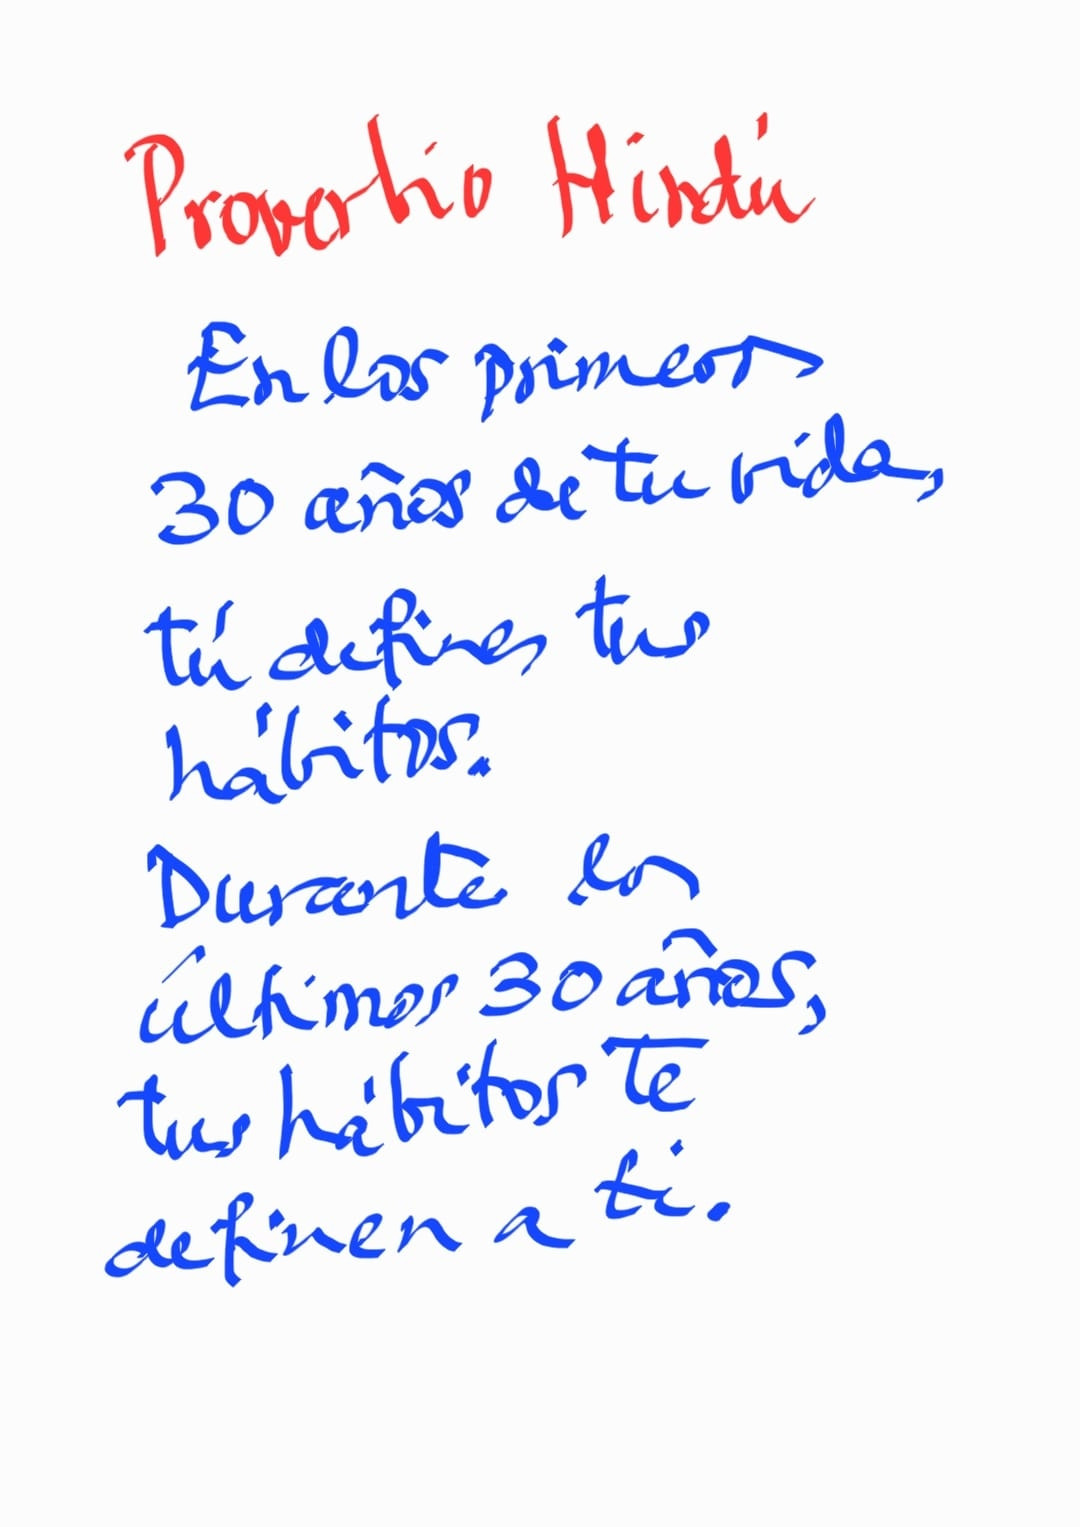 Proverbio Hindú
En los primeros
30 años de tu vida,
tú defines tus
hábitos.
Durante los
últimos 30 años,
tus hábitos te
definen a ti.